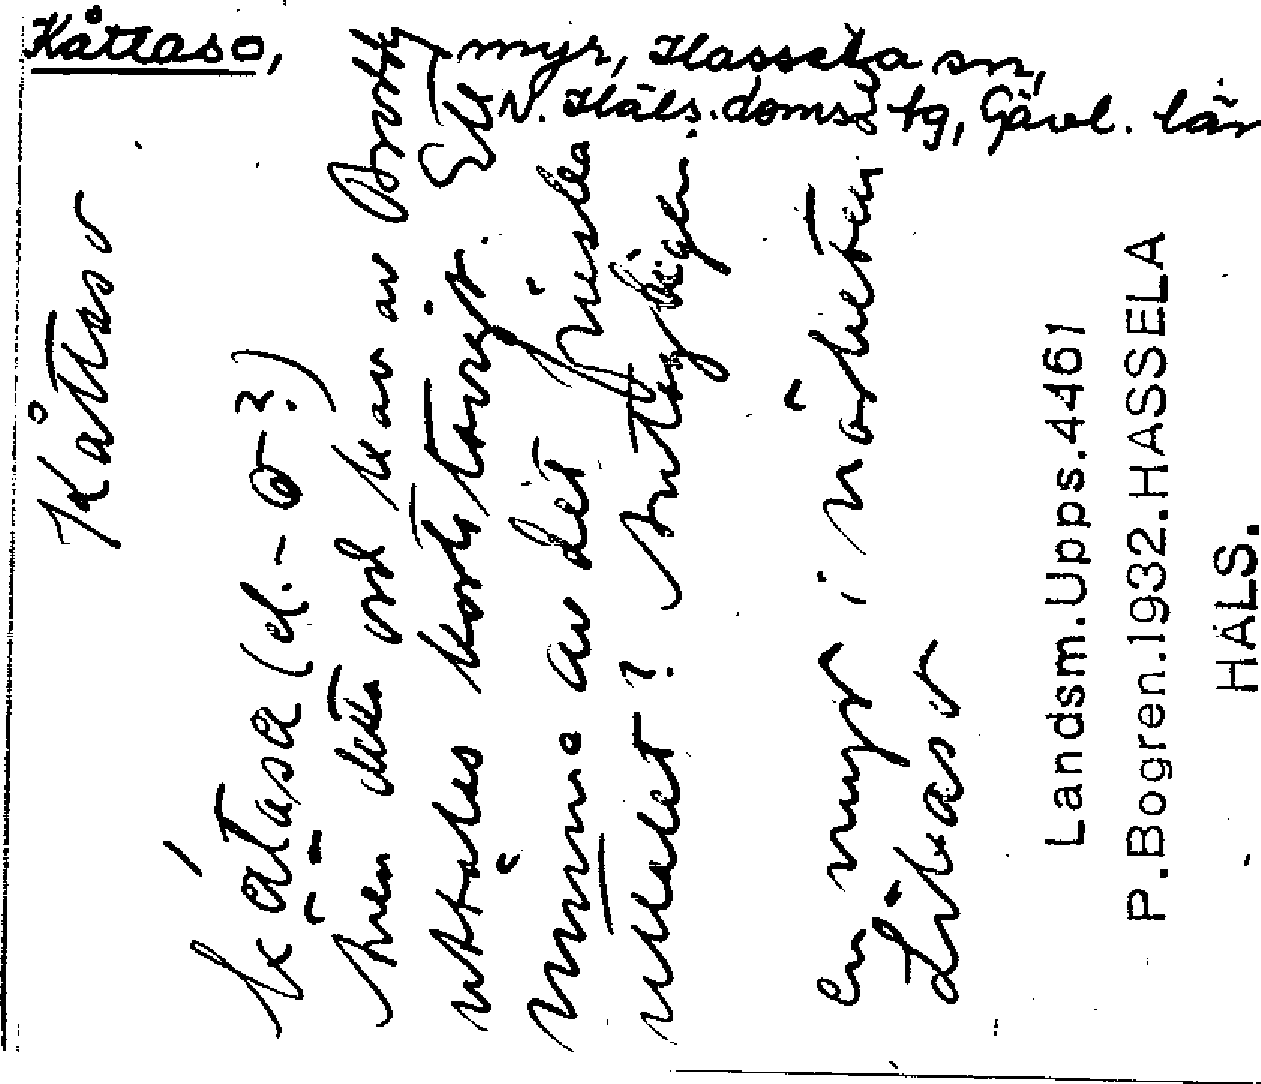 Kåttaso, myr, Hassela sn,
N. Häls. doms. tg, Gävl. län
Kåttaso
kåtasa (el. - o ?)
även detta ord har av
uttalas kort
minne av det
uttalet?
en myr i närheten
Likaso
Landsm.Upps.4461
P.Bogren.1932.HASSELA
HÄLS.